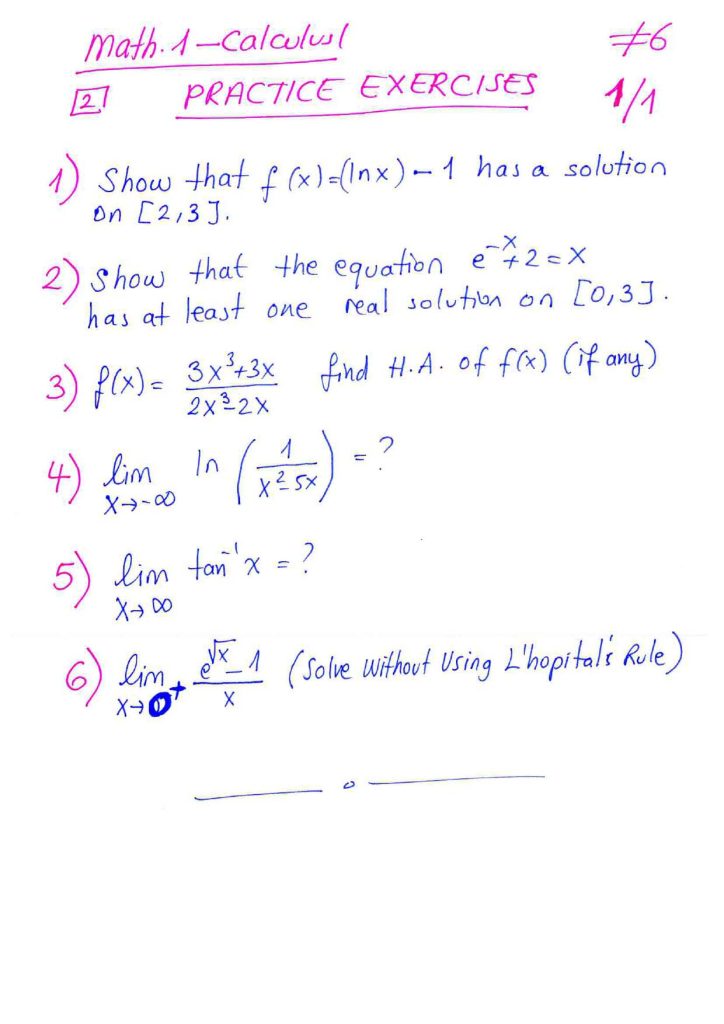 Math.1-Calculus1 #6
2 PRACTICE EXERCISES 1/1
1) Show that f(x)=(lnx)-1 has a solution
on [2,3].
2) Show that the equation e^-x+2=x
has at least one real solution on [0,3].
3) f(x)= 3x³+3x / 2x³-2x find H.A. of f(x) (if any)
4) lim x→-∞ ln (1 / x²-5x) = ?
5) lim x→∞ tan⁻¹x = ?
6) lim x→0⁺ e^√x-1 / x (Solve without Using L'hopital's Rule)